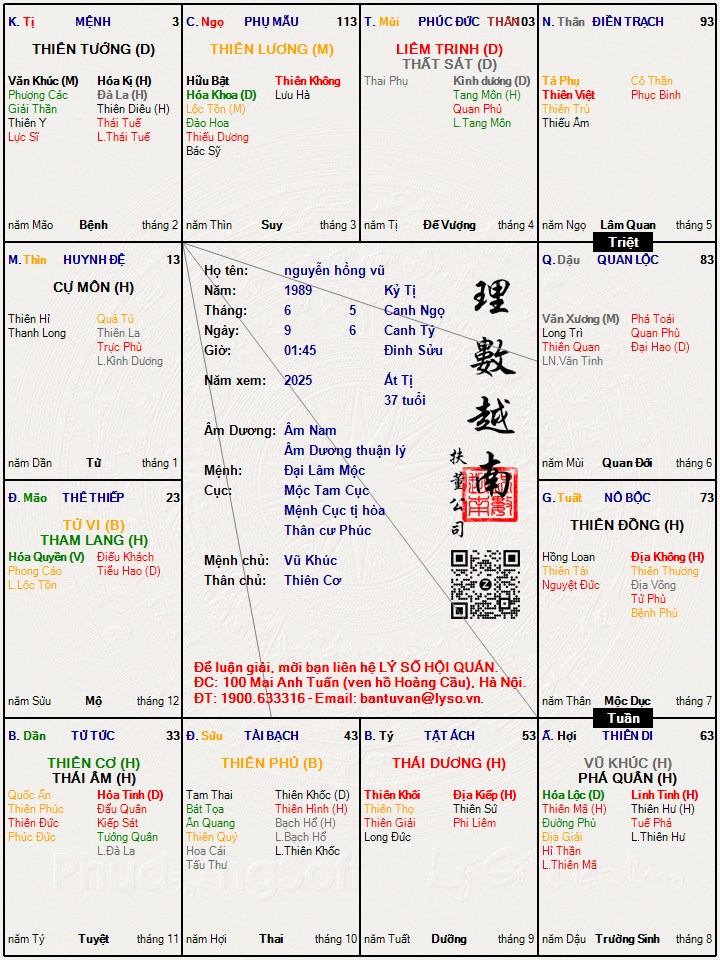 K. Tị MỆNH 3
THIÊN TƯỚNG (D)
Văn Khúc (M) Hóa Kị (H)
Phượng Các Đà La (H)
Giải Thần Thiên Diêu (H)
Thiên Y Thái Tuế
Lực Sĩ L.Thái Tuế
năm Mão Bệnh tháng 2
C. Ngọ PHỤ MẪU 113
THIÊN LƯƠNG (M)
Hữu Bật Thiên Không
Hóa Khoa (D) Lưu Hà
Lộc Tồn (M)
Đào Hoa
Thiếu Dương
Bác Sỹ
năm Thìn Suy tháng 3
T. Mùi PHÚC ĐỨC THÂN 103
LIÊM TRINH (D)
THẤT SÁT (D)
Thai Phụ Kình dương (D)
Tang Môn (H)
Quan Phủ
L.Tang Môn
năm Tị Đế Vượng tháng 4
N. Thân ĐIỀN TRẠCH 93
Tả Phụ Cô Thần
Thiên Việt Phục Binh
Thiên Trù
Thiếu Âm
năm Ngọ Lâm Quan tháng 5
Triệt
M. Thìn HUYNH ĐỆ 13
CỰ MÔN (H)
Thiên Hỉ Quả Tú
Thanh Long Thiên La
Trực Phù
L.Kình Dương
năm Dần Tử tháng 1
Họ tên: nguyễn hồng vũ
Năm: 1989 Kỷ Tị
Tháng: 6 5 Canh Ngọ
Ngày: 9 6 Canh Tý
Giờ: 01:45 Đinh Sửu
Năm xem: 2025 Ất Tị
37 tuổi
Âm Dương: Âm Nam
Âm Dương thuận lý
Mệnh: Đại Lâm Mộc
Cục: Mộc Tam Cục
Mệnh Cục tị hòa
Thân cư Phúc
Mệnh chủ: Vũ Khúc
Thân chủ: Thiên Cơ
理數越南
扶董公司
Để luận giải, mời bạn liên hệ LÝ SỐ HỘI QUÁN.
ĐC: 100 Mai Anh Tuấn (ven hồ Hoàng Cầu), Hà Nội.
ĐT: 1900.633316 - Email: bantuvan@lyso.vn.
Q. Dậu QUAN LỘC 83
Văn Xương (M) Phá Toái
Long Trì Quan Phù
Thiên Quan Đại Hao (D)
LN.Văn Tinh
năm Mùi Quan Đới tháng 6
Đ. Mão THÊ THIẾP 23
TỬ VI (B)
THAM LANG (H)
Hóa Quyền (V) Điếu Khách
Phong Cáo Tiểu Hao (D)
L.Lộc Tồn
năm Sửu Mộ tháng 12
G. Tuất NÔ BỘC 73
THIÊN ĐỒNG (H)
Hồng Loan Địa Không (H)
Thiên Tài Thiên Thương
Nguyệt Đức Địa Võng
Tử Phù
Bệnh Phù
năm Thân Mộc Dục tháng 7
Tuần
B. Dần TỬ TỨC 33
THIÊN CƠ (H)
THÁI ÂM (H)
Quốc Ấn Hỏa Tinh (D)
Thiên Phúc Đẩu Quân
Thiên Đức Kiếp Sát
Phúc Đức Tướng Quân
L.Đà La
năm Tý Tuyệt tháng 11
Đ. Sửu TÀI BẠCH 43
THIÊN PHỦ (B)
Tam Thai Thiên Khốc (D)
Bát Tọa Thiên Hình (H)
Ân Quang Bạch Hổ (H)
Thiên Quý L.Bạch Hổ
Hoa Cái L.Thiên Khốc
Tấu Thư
năm Hợi Thai tháng 10
B. Tý TẬT ÁCH 53
THÁI DƯƠNG (H)
Thiên Khôi Địa Kiếp (H)
Thiên Thọ Thiên Sứ
Thiên Giải Phi Liêm
Long Đức
năm Tuất Dưỡng tháng 9
Ấ. Hợi THIÊN DI 63
VŨ KHÚC (H)
PHÁ QUÂN (H)
Hóa Lộc (D) Linh Tinh (H)
Thiên Mã (H) Thiên Hư (H)
Đường Phù Tuế Phá
Địa Giải L.Thiên Hư
Hỉ Thần
L.Thiên Mã
năm Dậu Trường Sinh tháng 8